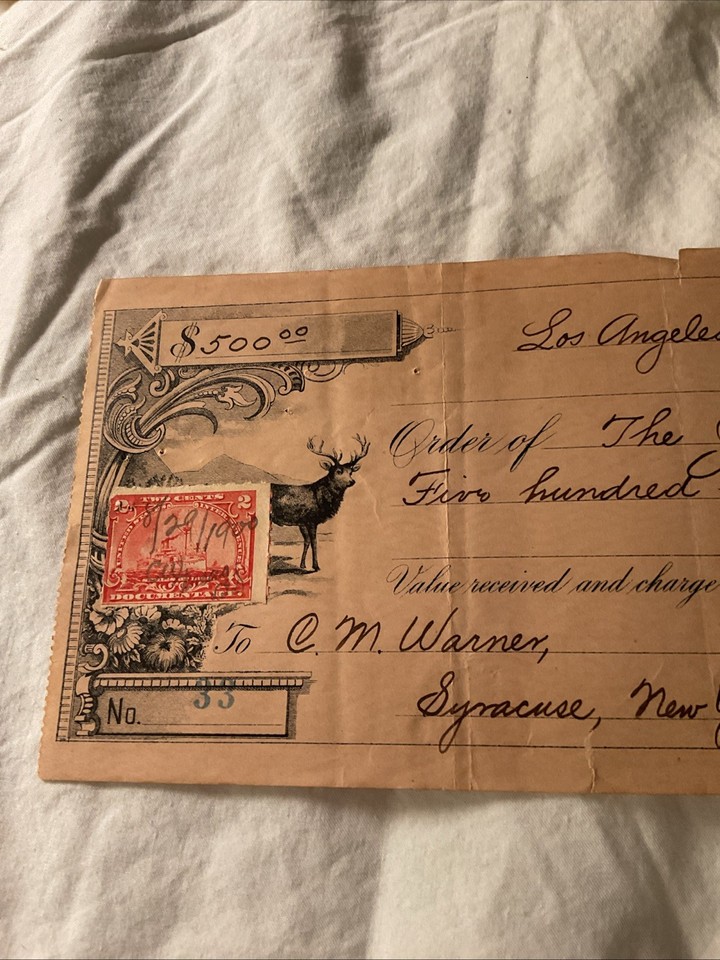 $500 00
Los Angeles
Order of The
Five hundred
TWO CENTS
2 2
8/29/1900
DOCUMENTARY
Value received and charge
To C. M. Warner,
No. 33
Syracuse, New